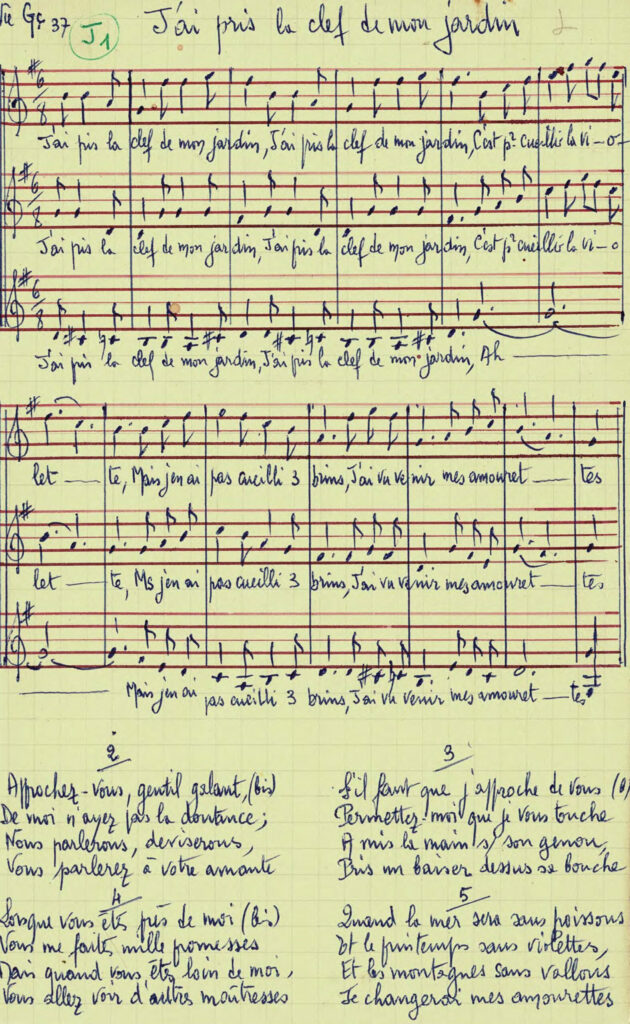 Vie Gç 37 J1 J'ai pris la clef de mon jardin
6/8 J'ai pris la clef de mon jardin, J'ai pris la clef de mon jardin, C'est pr cueillir la vi-o-
6/8 J'ai pris la clef de mon jardin, J'ai pris la clef de mon jardin, C'est pr cueillir la vi-o
6/8 J'ai pris la clef de mon jardin, J'ai pris la clef de mon jardin, Ah
let — te, Mais j'en ai pas cueilli 3 brins, J'ai vu venir mes amouret — tes
let — te, Ms j'en ai pas cueilli 3 brins, J'ai vu venir mes amouret — tes
Mais j'en ai pas cueilli 3 brins, J'ai vu venir mes amouret — tes
2
Approchez-vous, gentil galant, (bis)
De moi n'ayez pas la doutance;
Nous parlerons, deviserons,
Vous parlerez à votre amante
3
S'il faut que j'approche de vous (B)
Permettez-moi que je vous touche
A mis la main s/ son genou,
Pris un baiser dessus sa bouche
4
Lorsque vous êts près de moi (bis)
Vous me faites mille promesses
Mais quand vous êts loin de moi,
Vous allez voir d'autres maîtresses
5
Quand la mer sera sans poissons
Et le printemps sans violettes,
Et les montagnes sans vallons
Je changerai mes amourettes